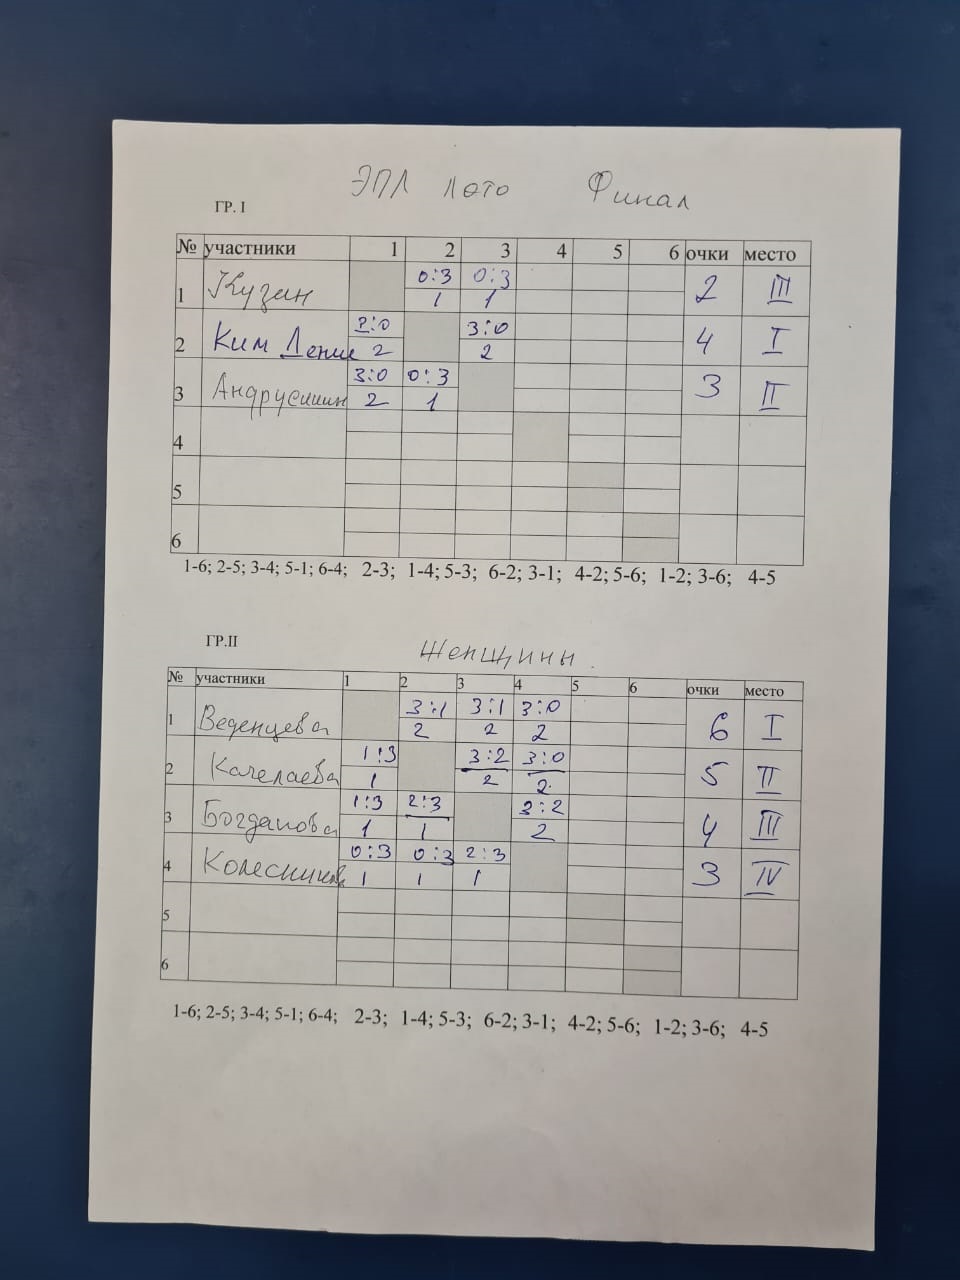 ЭПЛ лото Финал
ГР. I
№ участники 1 2 3 4 5 6 очки место
1 Кузин 0:3 0:3 2 III
1 1
2 Ким Денис 3:0 3:0 4 I
2 2
3 Андрусишин 3:0 0:3 3 II
2 1
4
5
6
1-6; 2-5; 3-4; 5-1; 6-4; 2-3; 1-4; 5-3; 6-2; 3-1; 4-2; 5-6; 1-2; 3-6; 4-5
ГР.II
Женщины
№ участники 1 2 3 4 5 6 очки место
1 Веденцева 3:1 3:1 3:0 6 I
2 2 2
2 Качелаева 1:3 3:2 3:0 5 II
1 2 2
3 Богданова 1:3 2:3 3:2 4 III
1 1 2
4 Колесников 0:3 0:3 2:3 3 IV
1 1 1
5
6
1-6; 2-5; 3-4; 5-1; 6-4; 2-3; 1-4; 5-3; 6-2; 3-1; 4-2; 5-6; 1-2; 3-6; 4-5